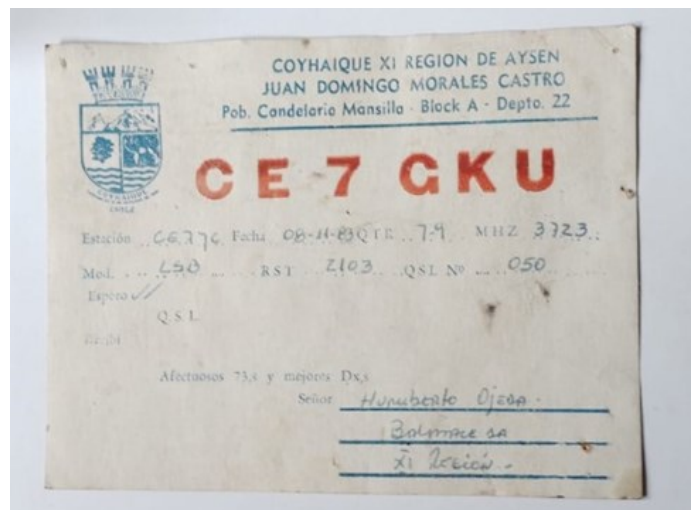 COYHAIQUE XI REGION DE AYSEN
JUAN DOMINGO MORALES CASTRO
Pob. Candelaria Mansilla - Block A - Depto. 22
COYHAIQUE
CHILE
CE 7 GKU
Estación Fecha 08-11-83 QTR 7-9 MHZ 3723
Mod. LSB RST 2103 QSL Nº 050
Espero
Q.S.L.
Recibí
Afectuosos 73,s y mejores Dx,s
Señor Humberto Ojeda
XI Región